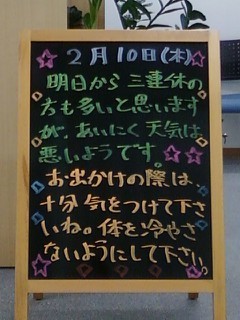 2月10日(木)
明日から三連休の
方も多いと思います
が、あいにく天気は
悪いようです。
お出かけの際は
十分気をつけて下さ
いね。体を冷やさ
ないようにして下さい。